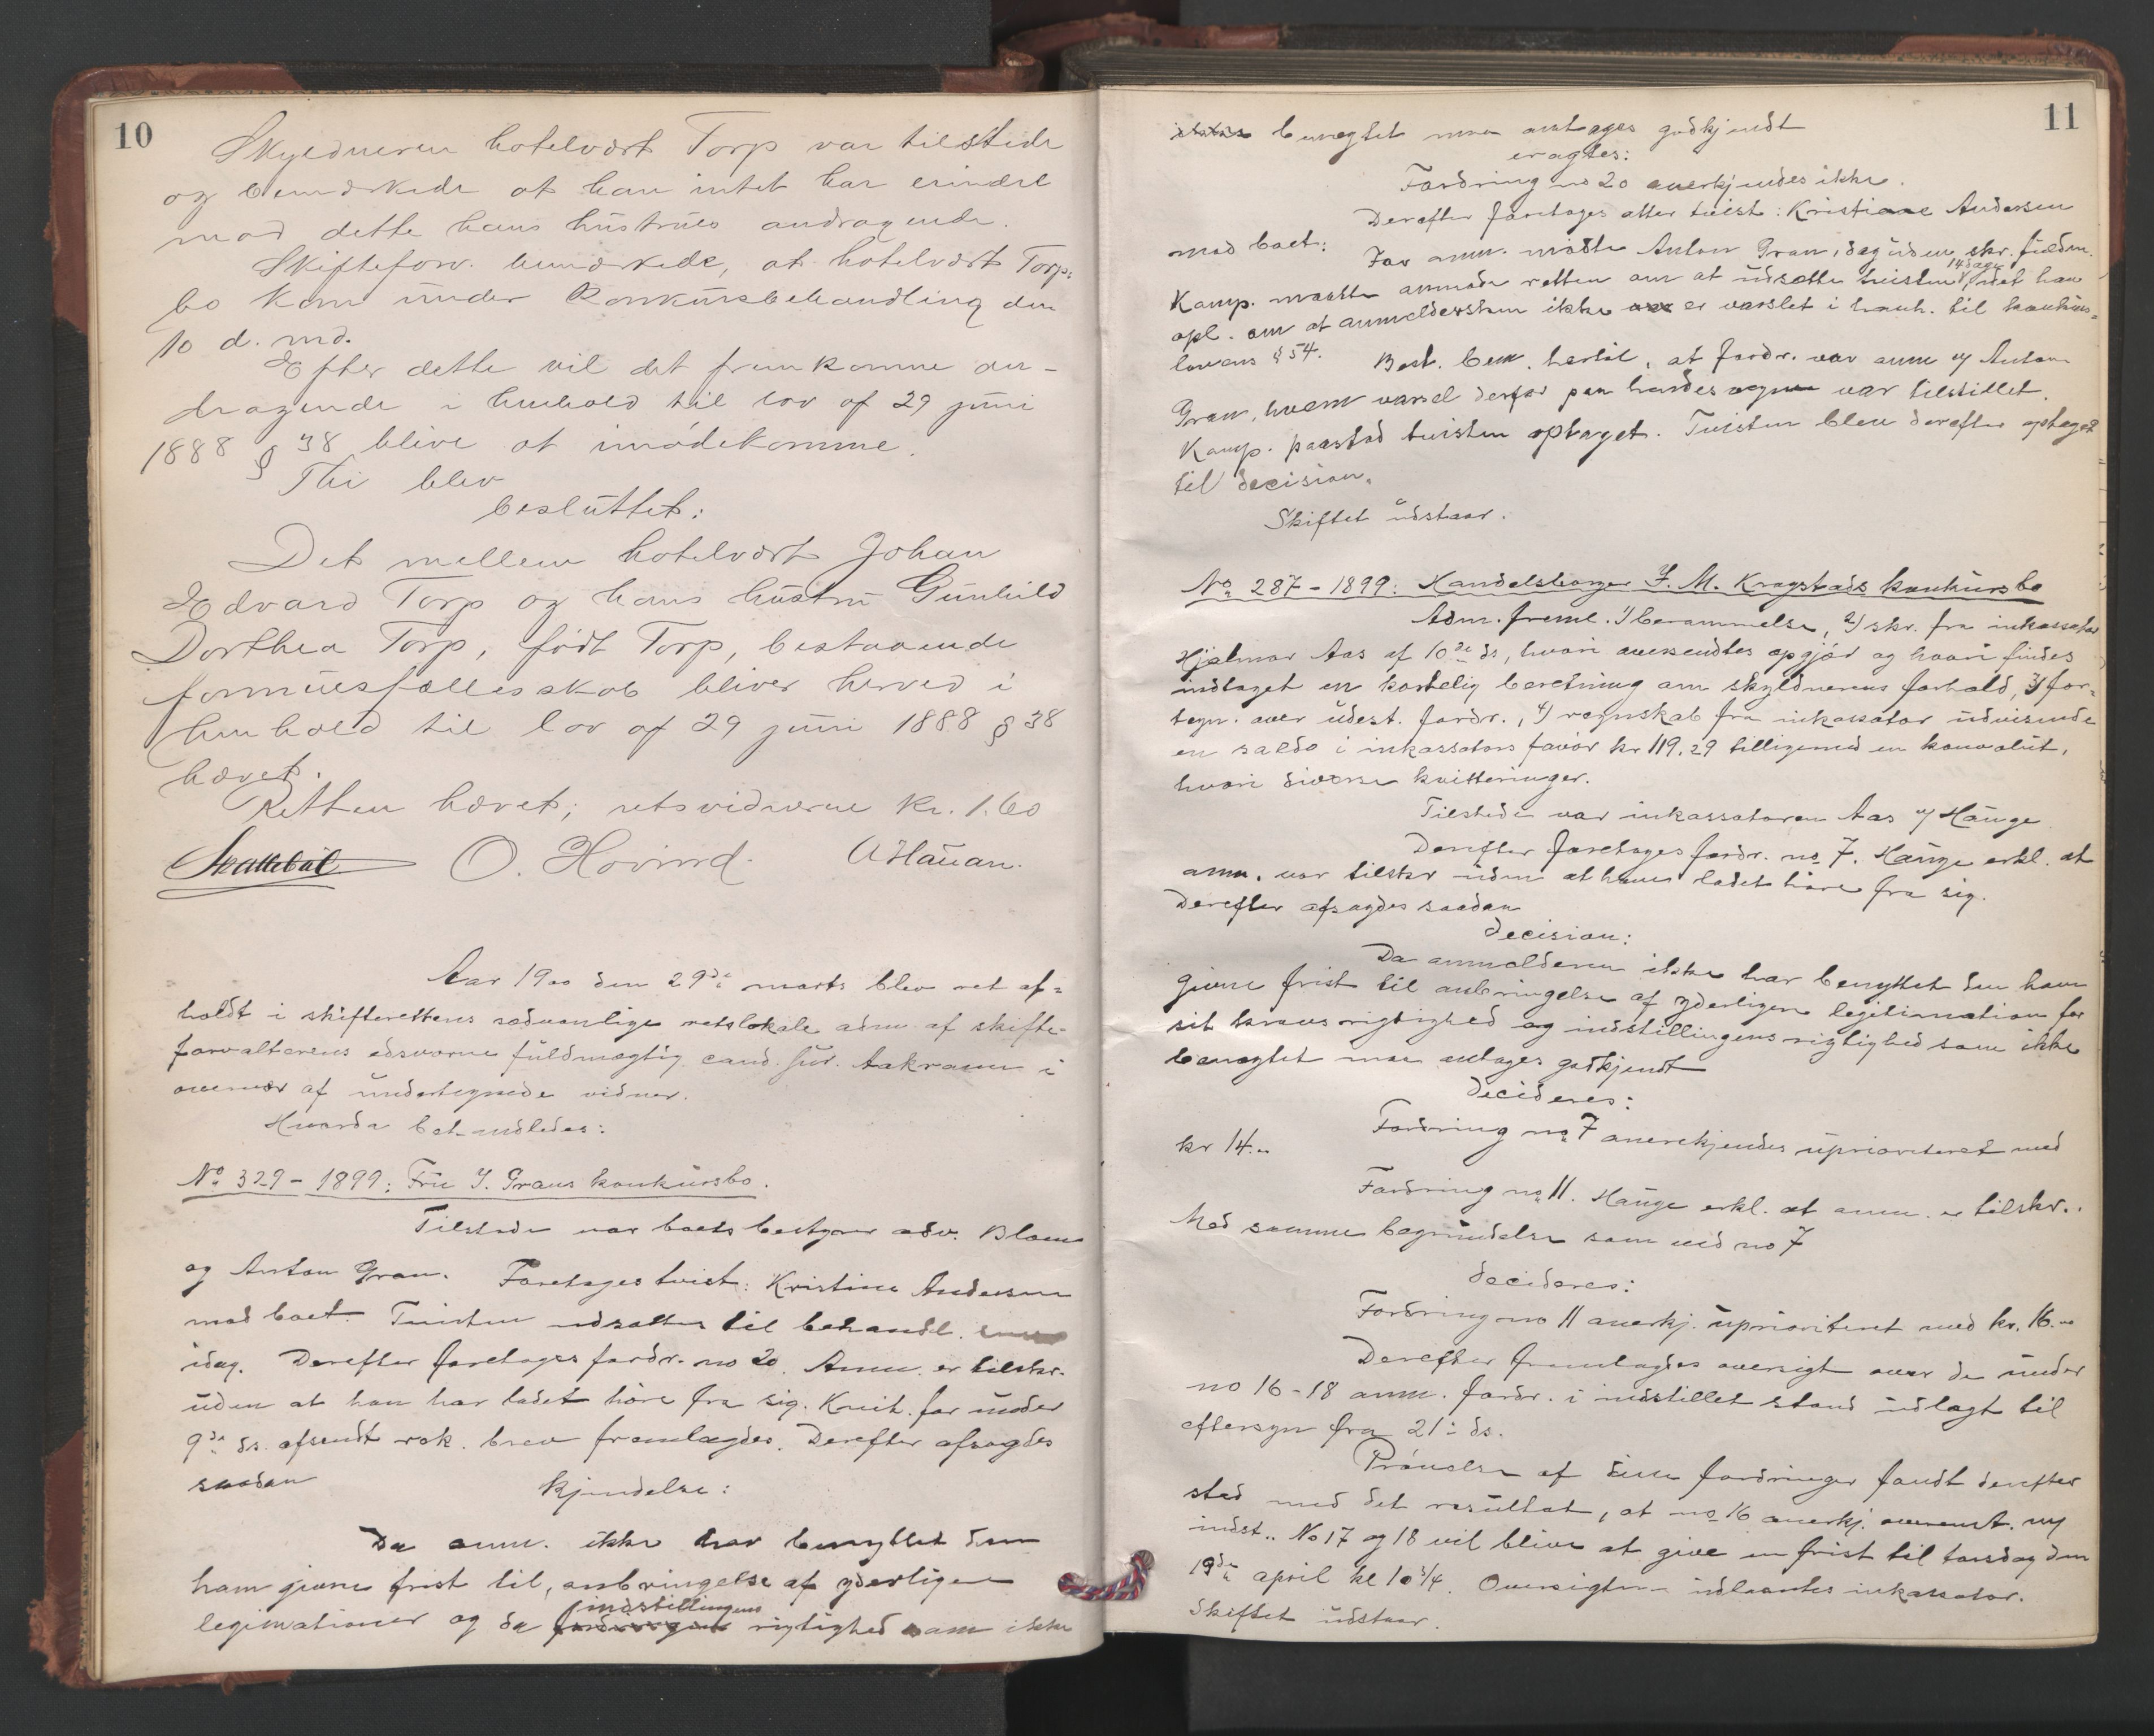 10
Skyldneren hotelvært Torp var tilstede
og bemærkede at han intet har erindre
mod dette hans hustrues andragende.
Skifteforv. bemærkede, at hotelvært Torps
bo kom under Konkursbehandling den
10 d. md.
Efter dette vil det fremkomne an-
dragende i henhold til lov af 29 juni
1888 § 38 blive at imødekomme.
Thi blev
besluttet:
Det mellem hotelvært Johan
Edvard Torp og hans hustru Gunhild
Dorthea Torp, født Torp, bestaaende
formuesfællesskab bliver herved i
henhold til lov af 29 juni 1888 § 38
hævet.
Retten hævet; retsvidnerne kr. 1.60
Skattebøl O. Hovind. A Hauan.
Aar 1900 den 29de marts blev ret af-
holdt i skifterettens sædvanlige retslokale adm af skifte-
forvalterens edsvorne fuldmægtig cand. jur. Aakrann i
overvær af undertegnede vidner.
Hvorda behandledes:
No 329 - 1899: Fru J. Grans konkursbo.
Tilstede var boets bestyrer adv. Blom
og Anton Gran. Foretages tvist: Kristine Andersen
mod boet. Tvisten udsattes til behandl.
idag. Derefter foretages fordr. no 20. Anm. er tilskr.
uden at han har ladet høre fra sig. Kvit. for under
9de ds. afsendt rek. brev fremlægdes. Derefter afsagdes
saadan kjendelse:
Da anm. ikke har benyttet den
ham givne frist til, anbringelse af yderligere
legimationer og da fordringens indstillingens rigtighed som ikke
11
benegtet maa antages godkjendt
eragtes:
Fordring no 20 anerkjendes ikke.
Derefter foretages atter tvist: Kristiane Andersen
mod boet: For anm. mødte Anton Gran, dog uden skr. fuldm.
Komp. maatte anmode retten om at udsætte tvisten 14 dage, idet han
opl. om at anmeldersken ikke er varslet i henh. til konkurs-
lovens § 54. Best. bem. hertil, at fordr. var anm v/ Anton
Gran, hvem varsel derfor paa hendes vegne var tilstillet.
Komp. paastod tvisten optaget. Tvisten blev derefter optaget
til decision.
Skiftet udstaar.
No 287 - 1899: Handelsborger J. M. Krogstads konkursbo
Adm. freml. 1) berammelse, 2) skr. fra inkassator
Hjalmar Aas af 10de ds, hvori oversendtes opgjør og hvori findes
indtaget en kortelig beretning om skyldnerens forhold, 3) for-
tegn. over udest. fordr., 4) regnskab fra inkassator udvisende
en saldo i inkassators favør kr 119.29 tilligemed en konvolut,
hvori diverse kvitteringer.
Tilstede var inkassatoren Aas v/ Hauge
Derefter foretages fordr. no 7. Hauge erkl. at
anm. var tilskr uden at have ladet høre fra sig.
Derefter afsagdes saadan
decision:
Da anmelderen ikke har benyttet den ham
givne frist til anbringelse af yderligere legitimation for
sit kravs rigtighed og indstillingens rigtighed som ikke
benegtet maa antages godkjendt
decideres:
Fordring no 7 anerkjendes uprioriteret med
kr 14.-
Fordring no 11. Hauge erkl. at anm. er tilskr..
Med samme begrundelse som ved no 7
decideres:
Fordring no 11 anerkj. uprioriteret med kr. 16.-
Derefter fremlagdes oversigt over de under
no 16-18 anm. fordr. i indstillet stand udlagt til
eftersyn fra 21de ds.
Prøvelse af disse fordringer fandt derefter
sted med det resultat, at no 16 anerkj. overenst. m/
indst.. No 17 og 18 vil blive at give en frist til torsdag den
19de april kl 10 3/4. Oversigten udlaantes inkassator.
Skiftet udstaar.